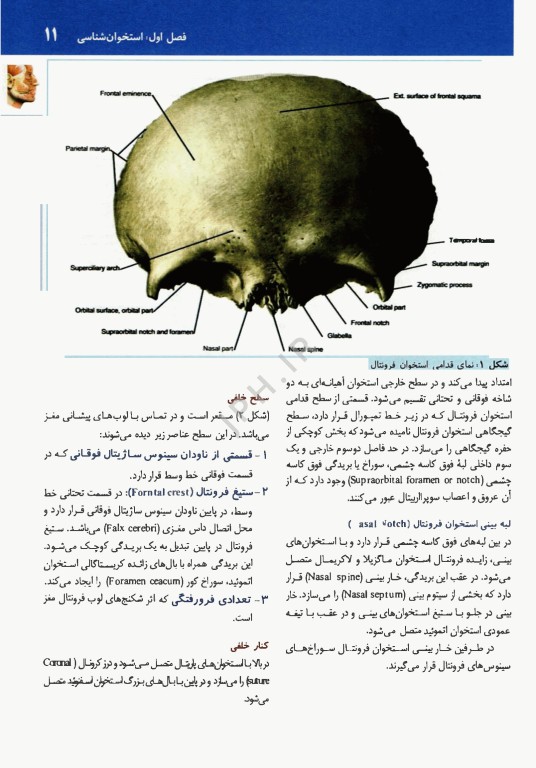 فصل اول، استخوان‌شناسی ۱۱
Frontal eminence
Ext. surface of frontal squama
Parietal margin
Temporal fossa
Superciliary arch
Supraorbital margin
Zygomatic process
Orbital surface, orbital part
Orbital part
Supraorbital notch and foramen
Frontal notch
Glabella
Nasal part
Nasal spine
JPH.IR
شکل ۱: نمای قدامی استخوان فرونتال
امتداد پیدا می‌کند و در سطح خارجی استخوان آهیانه‌ای به دو
شاخه فوقانی و تحتانی تقسیم می‌شود. قسمتی از سطح قدامی
استخوان فرونتال که در زیر خط تمپورال قرار دارد، سطح
گیجگاهی استخوان فرونتال نامیده می‌شود که بخش کوچکی از
حفره گیجگاهی را می‌سازد. در حد فاصل دوسوم خارجی و یک
سوم داخلی لبهٔ فوق کاسه چشمی، سوراخ یا بریدگی فوق کاسه
چشمی (Supraorbital foramen or notch) وجود دارد که از
آن عروق و اعصاب سوپرااربیتال عبور می‌کنند.
لبه بینی استخوان فرونتال (asal Notch )
در بین لبه‌های فوق کاسه چشمی قرار دارد و با استخوان‌های
بینی، زایده فرونتال استخوان ماگزیلا و لاکریمال متصل
می‌شود. در عقب این بریدگی، خار بینی (Nasal spine) قرار
دارد که بخشی از سپتوم بینی (Nasal septum) را می‌سازد. خار
بینی در جلو با ستیغ استخوان‌های بینی و در عقب با تیغه
عمودی استخوان اتموئید متصل می‌شود.
در طرفین خار بینی استخوان فرونتال سوراخ‌های
سینوس‌های فرونتال قرار می‌گیرند.
سطح خلفی
(شکل ۲) مقعر است و در تماس با لوب‌های پیشانی مغز
می‌باشد. در این سطح عناصر زیر دیده می‌شوند:
۱- قسمتی از ناودان سینوس ساژیتال فوقانی که در
قسمت فوقانی خط وسط قرار دارد.
۲- ستیغ فرونتال (Forntal crest): در قسمت تحتانی خط
وسط، در پایین ناودان سینوس ساژیتال فوقانی قرار دارد و
محل اتصال داس مغزی (Falx cerebri) می‌باشد. ستیغ
فرونتال در پایین تبدیل به یک بریدگی کوچک می‌شود.
این بریدگی همراه با بال‌های زائده کریستاگالی استخوان
اتموئید، سوراخ کور (Foramen ceacum) را ایجاد می‌کند.
۳- تعدادی فرورفتگی که اثر شکنج‌های لوب فرونتال مغز
است.
کنار خلفی
در بالا با استخوان‌های پاریتال متصل می‌شود و درز کرونال (Coronal
suture) را می‌سازد و در پایین با بال‌های بزرگ استخوان اسفنوئید متصل
می‌شود.